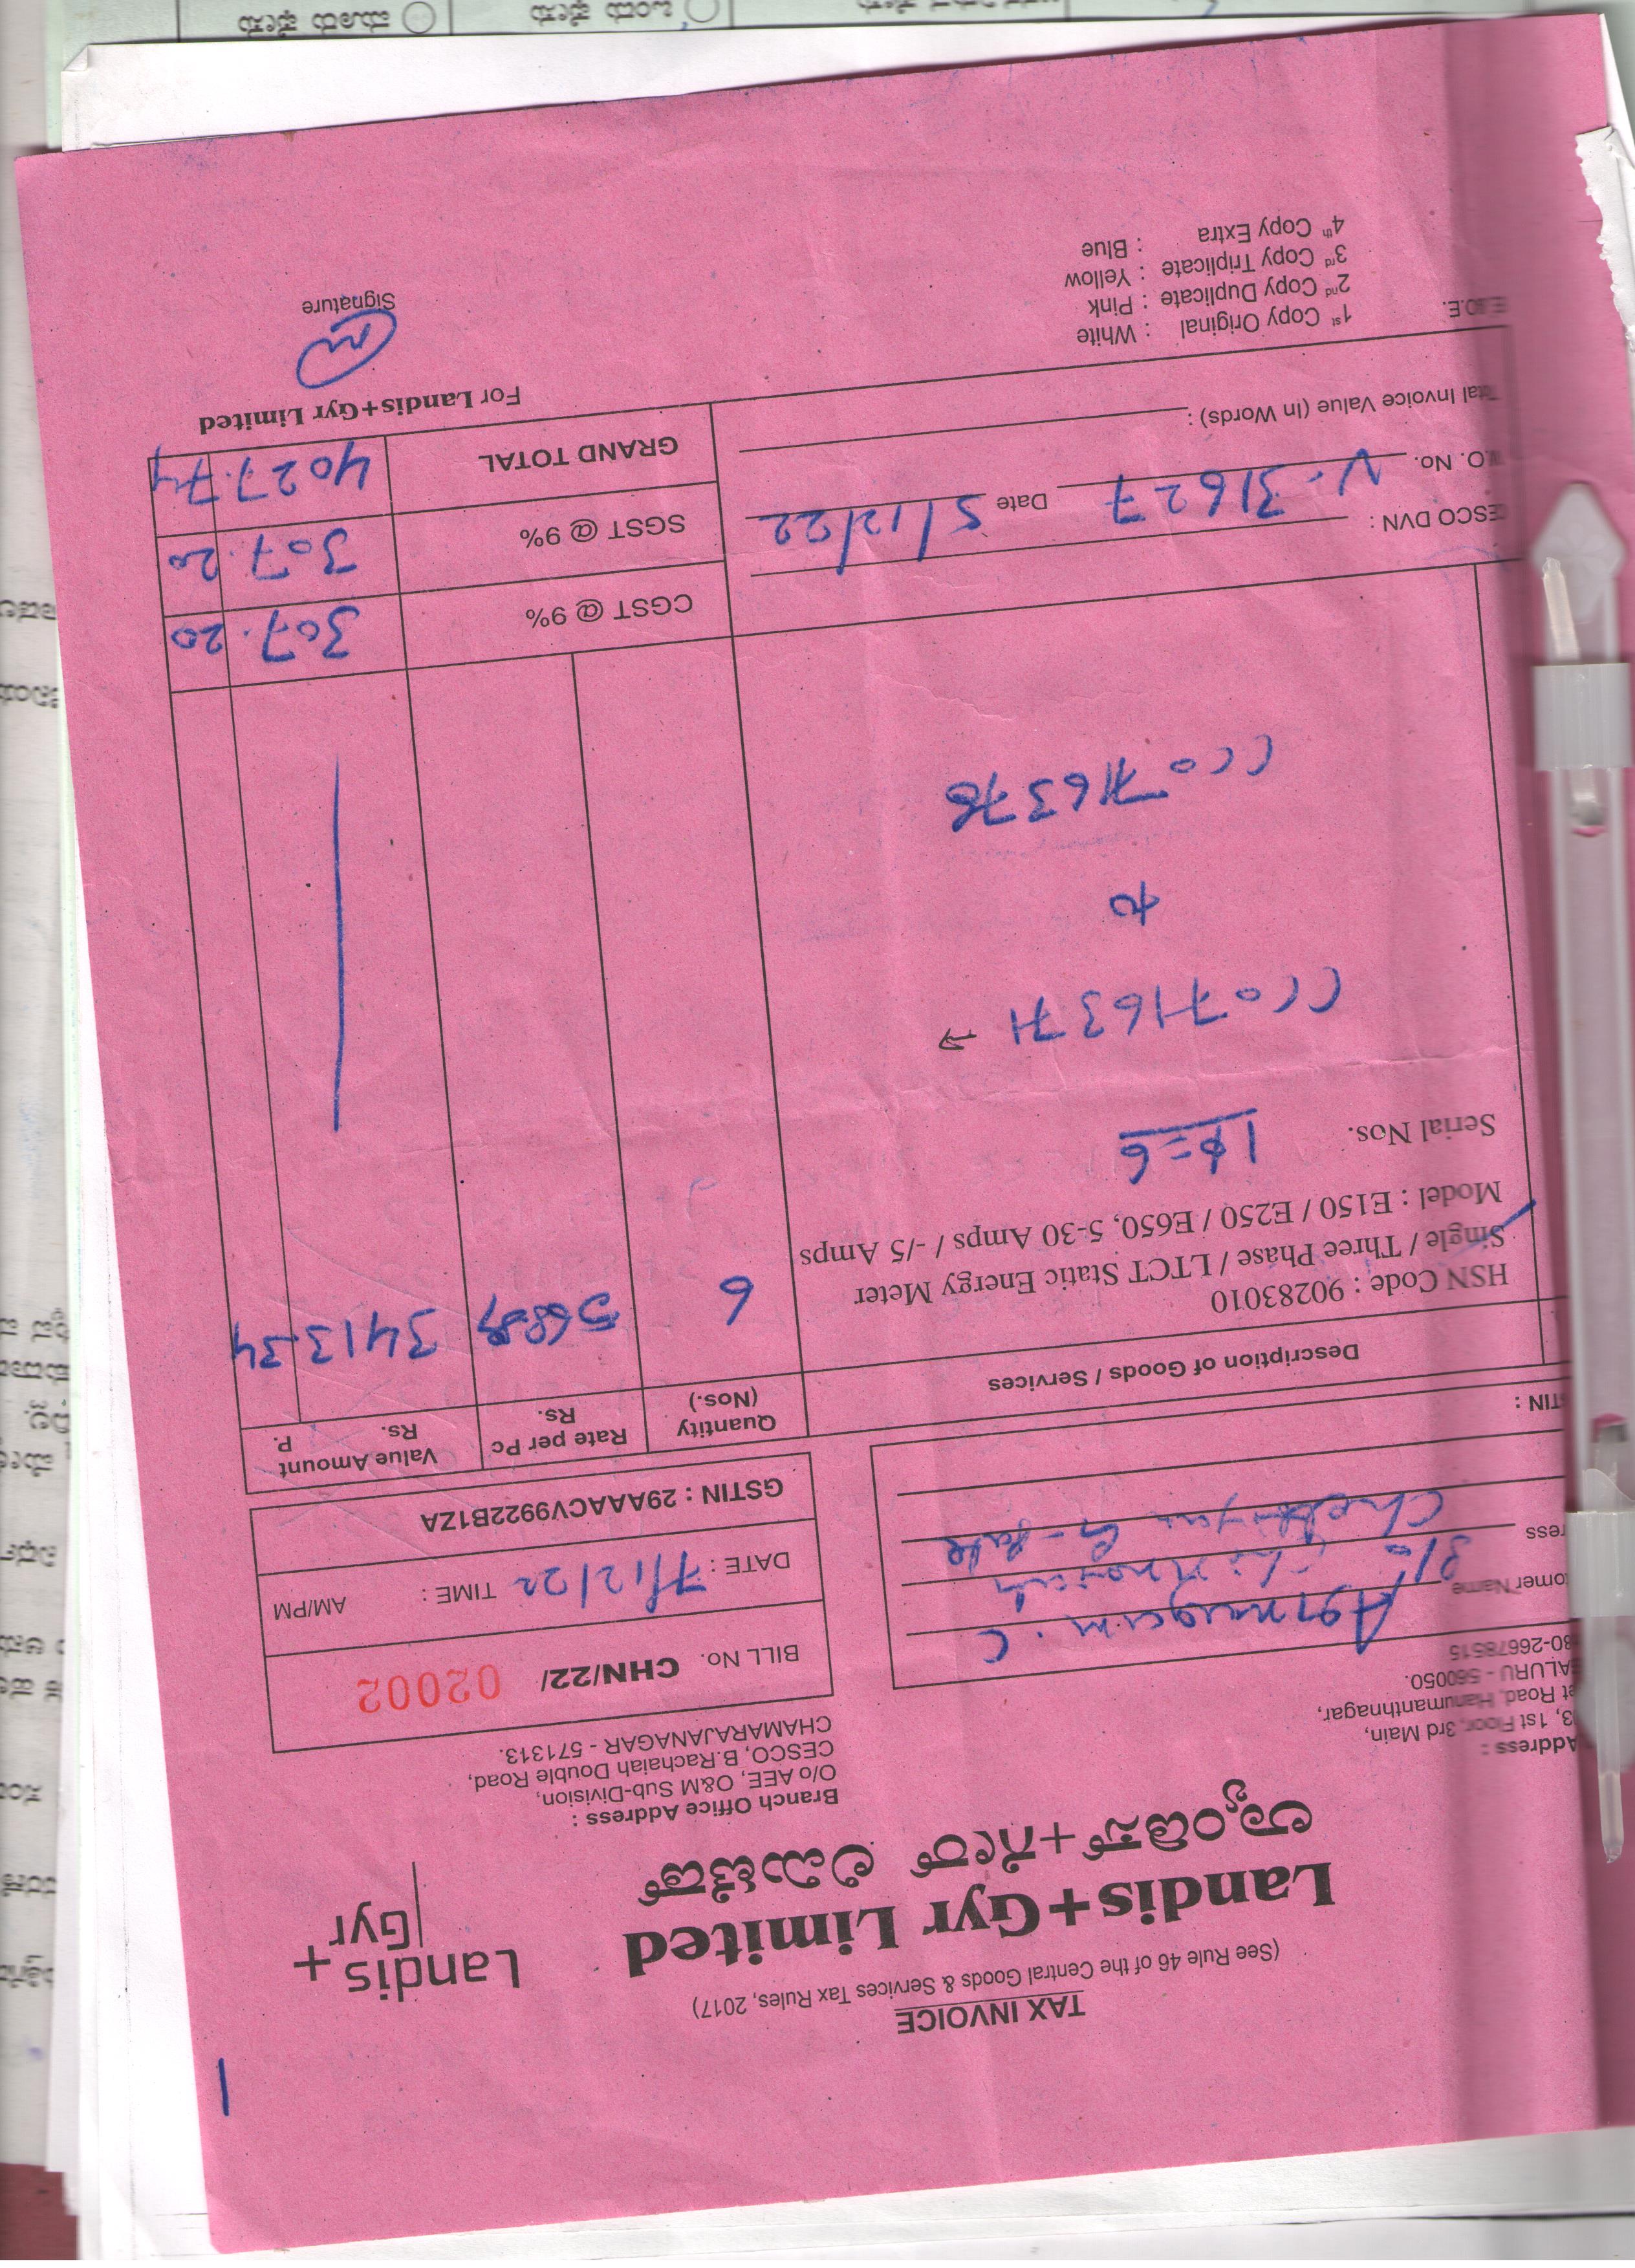 TAX INVOICE
(See Rule 46 of the Central Goods & Services Tax Rules, 2017)
Landis+Gyr Limited
ಲ್ಯಾಂಡಿಸ್+ಗೀರ್ ಲಿಮಿಟೆಡ್
Landis+
Gyr
Address :
3, 1st Floor, 3rd Main,
et Road, Hanumanthnagar,
ALURU - 560050.
80-26678515
Branch Office Address :
O/o AEE, O&M Sub-Division,
CESCO, B.Rachaiah Double Road,
CHAMARAJANAGAR - 571313.
BILL No. CHN/22/ 02002
DATE : 7/12/22 TIME : AM/PM
GSTIN : 29AAACV9922B1ZA
omer Name
ress
TIN :
Description of Goods / Services
Quantity (Nos.)
Rate per Pc Rs.
Value Amount Rs. P.
HSN Code : 90283010
Single / Three Phase / LTCT Static Energy Meter
Model : E150 / E250 / E650, 5-30 Amps / -/5 Amps
6
3413.34
Serial Nos. 1ϕ=6
CC0716371 →
to
CC0716376
CGST @ 9% 307.20
SGST @ 9% 307.20
GRAND TOTAL 4027.74
CESCO DVN :
W.O. No. N-31627 Date 5/12/22
Total Invoice Value (In Words) :
For Landis+Gyr Limited
Signature
E.&O.E.
1st Copy Original : White
2nd Copy Duplicate : Pink
3rd Copy Triplicate : Yellow
4th Copy Extra : Blue